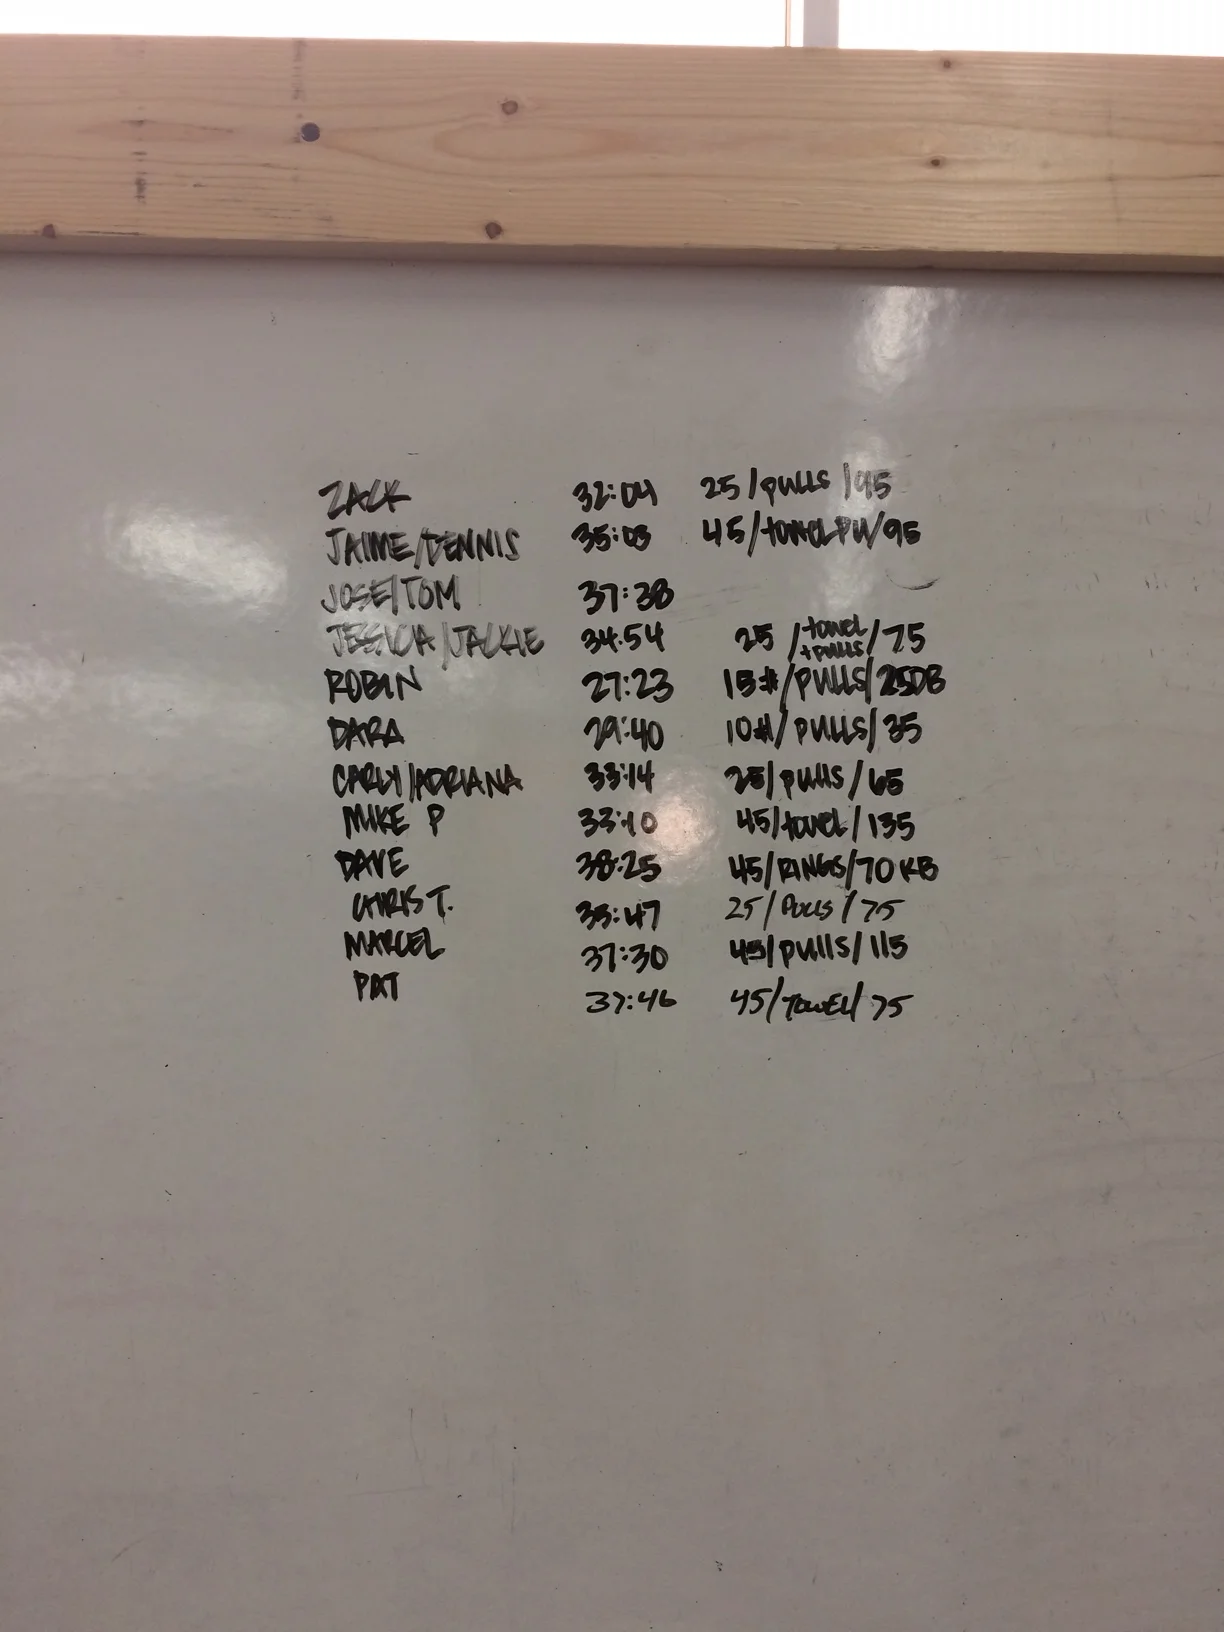 ZACK 32:04 25/PULLS/95
JAIME/DENNIS 35:03 45/TOWELPU/95
JOSE/TOM 37:38
JESSICA/JACKIE 34:54 25/towel + pulls/75
ROBIN 27:23 15#/PULLS/25DB
DARA 29:40 10#/PULLS/35
CARLY/ADRIANA 33:14 25/pulls/65
MIKE P 33:10 45/towel/135
DAVE 38:25 45/RINGS/70KB
CHRIS T. 35:47 25/PULLS/75
MARCEL 37:30 45/pulls/115
PAT 37:46 45/TOWEL/75